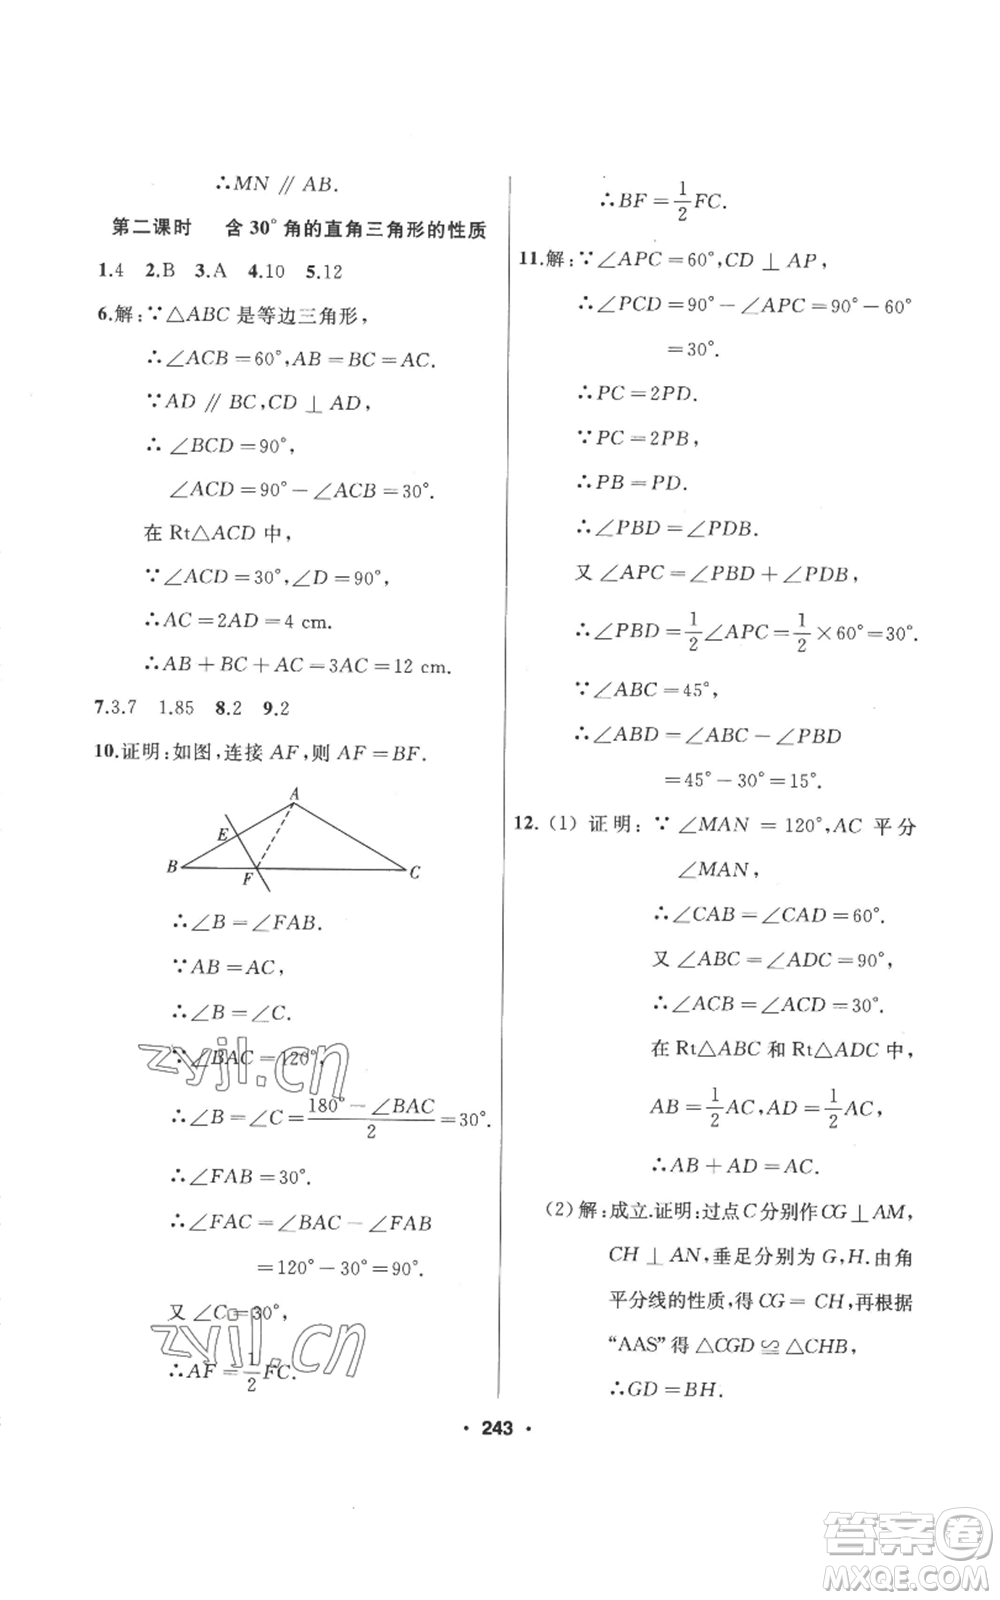 ∴MN∥AB.
第二课时 含30°角的直角三角形的性质
1.4 2.B 3.A 4.10 5.12
6.解:∵△ABC是等边三角形,
∴∠ACB=60°,AB=BC=AC.
∵AD∥BC,CD⊥AD,
∴∠BCD=90°,
∠ACD=90°-∠ACB=30°.
在Rt△ACD中,
∵∠ACD=30°,∠D=90°,
∴AC=2AD=4 cm.
∴AB+BC+AC=3AC=12 cm.
7.3.7 1.85 8.2 9.2
10.证明:如图,连接AF,则AF=BF.
A
E
B
F
C
∴∠B=∠FAB.
∵AB=AC,
∴∠B=∠C.
∵∠BAC=120°,
∴∠B=∠C=(180°-∠BAC)/2=30°.
∴∠FAB=30°.
∴∠FAC=∠BAC-∠FAB
=120°-30°=90°.
又∠C=30°,
∴AF=1/2FC.
∴BF=1/2FC.
11.解:∵∠APC=60°,CD⊥AP,
∴∠PCD=90°-∠APC=90°-60°
=30°.
∴PC=2PD.
∵PC=2PB,
∴PB=PD.
∴∠PBD=∠PDB.
又∠APC=∠PBD+∠PDB,
∴∠PBD=1/2∠APC=1/2×60°=30°.
∵∠ABC=45°,
∴∠ABD=∠ABC-∠PBD
=45°-30°=15°.
12.(1)证明:∵∠MAN=120°,AC平分
∠MAN,
∴∠CAB=∠CAD=60°.
又∠ABC=∠ADC=90°,
∴∠ACB=∠ACD=30°.
在Rt△ABC和Rt△ADC中,
AB=1/2AC,AD=1/2AC,
∴AB+AD=AC.
(2)解:成立.证明:过点C分别作CG⊥AM,
CH⊥AN,垂足分别为G,H.由角
平分线的性质,得CG=CH,再根据
“AAS”得△CGD≌△CHB,
∴GD=BH.
·243·
zyjl.cn
zyjl.cn
答案卷
MXQE.COM